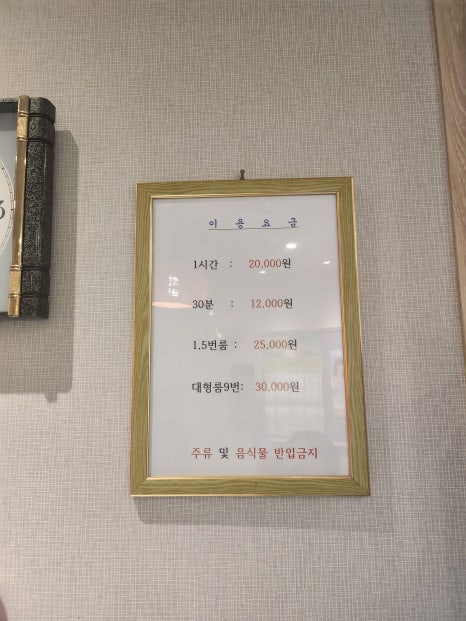 이 용 요 금
1시간 : 20,000원
30분 : 12,000원
1,5번룸 : 25,000원
대형룸9번: 30,000원
주류 및 음식물 반입금지
3